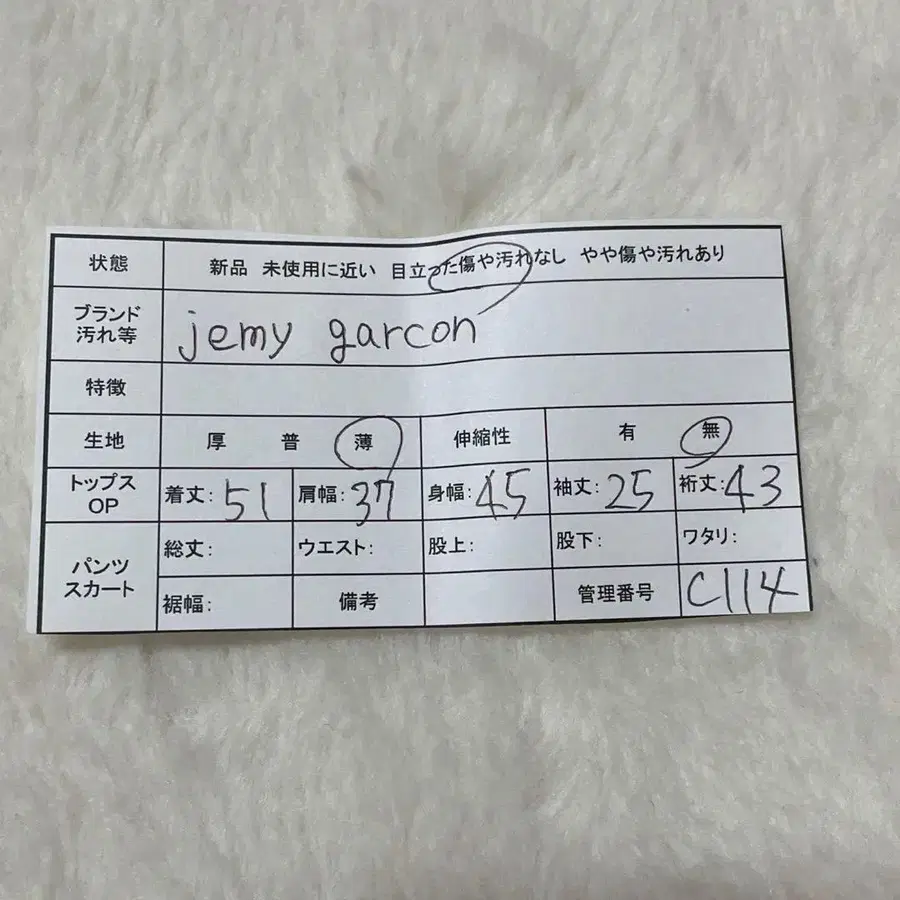 状態 新品 未使用に近い 目立った傷や汚れなし やや傷や汚れあり
ブランド 汚れ等 jemy garcon
特徴
生地 厚 普 薄 伸縮性 有 無
トップス OP 着丈:51 肩幅:37 身幅:45 袖丈:25 裄丈:43
パンツ スカート 総丈: ウエスト: 股上: 股下: ワタリ:
裾幅: 備考 管理番号 C114